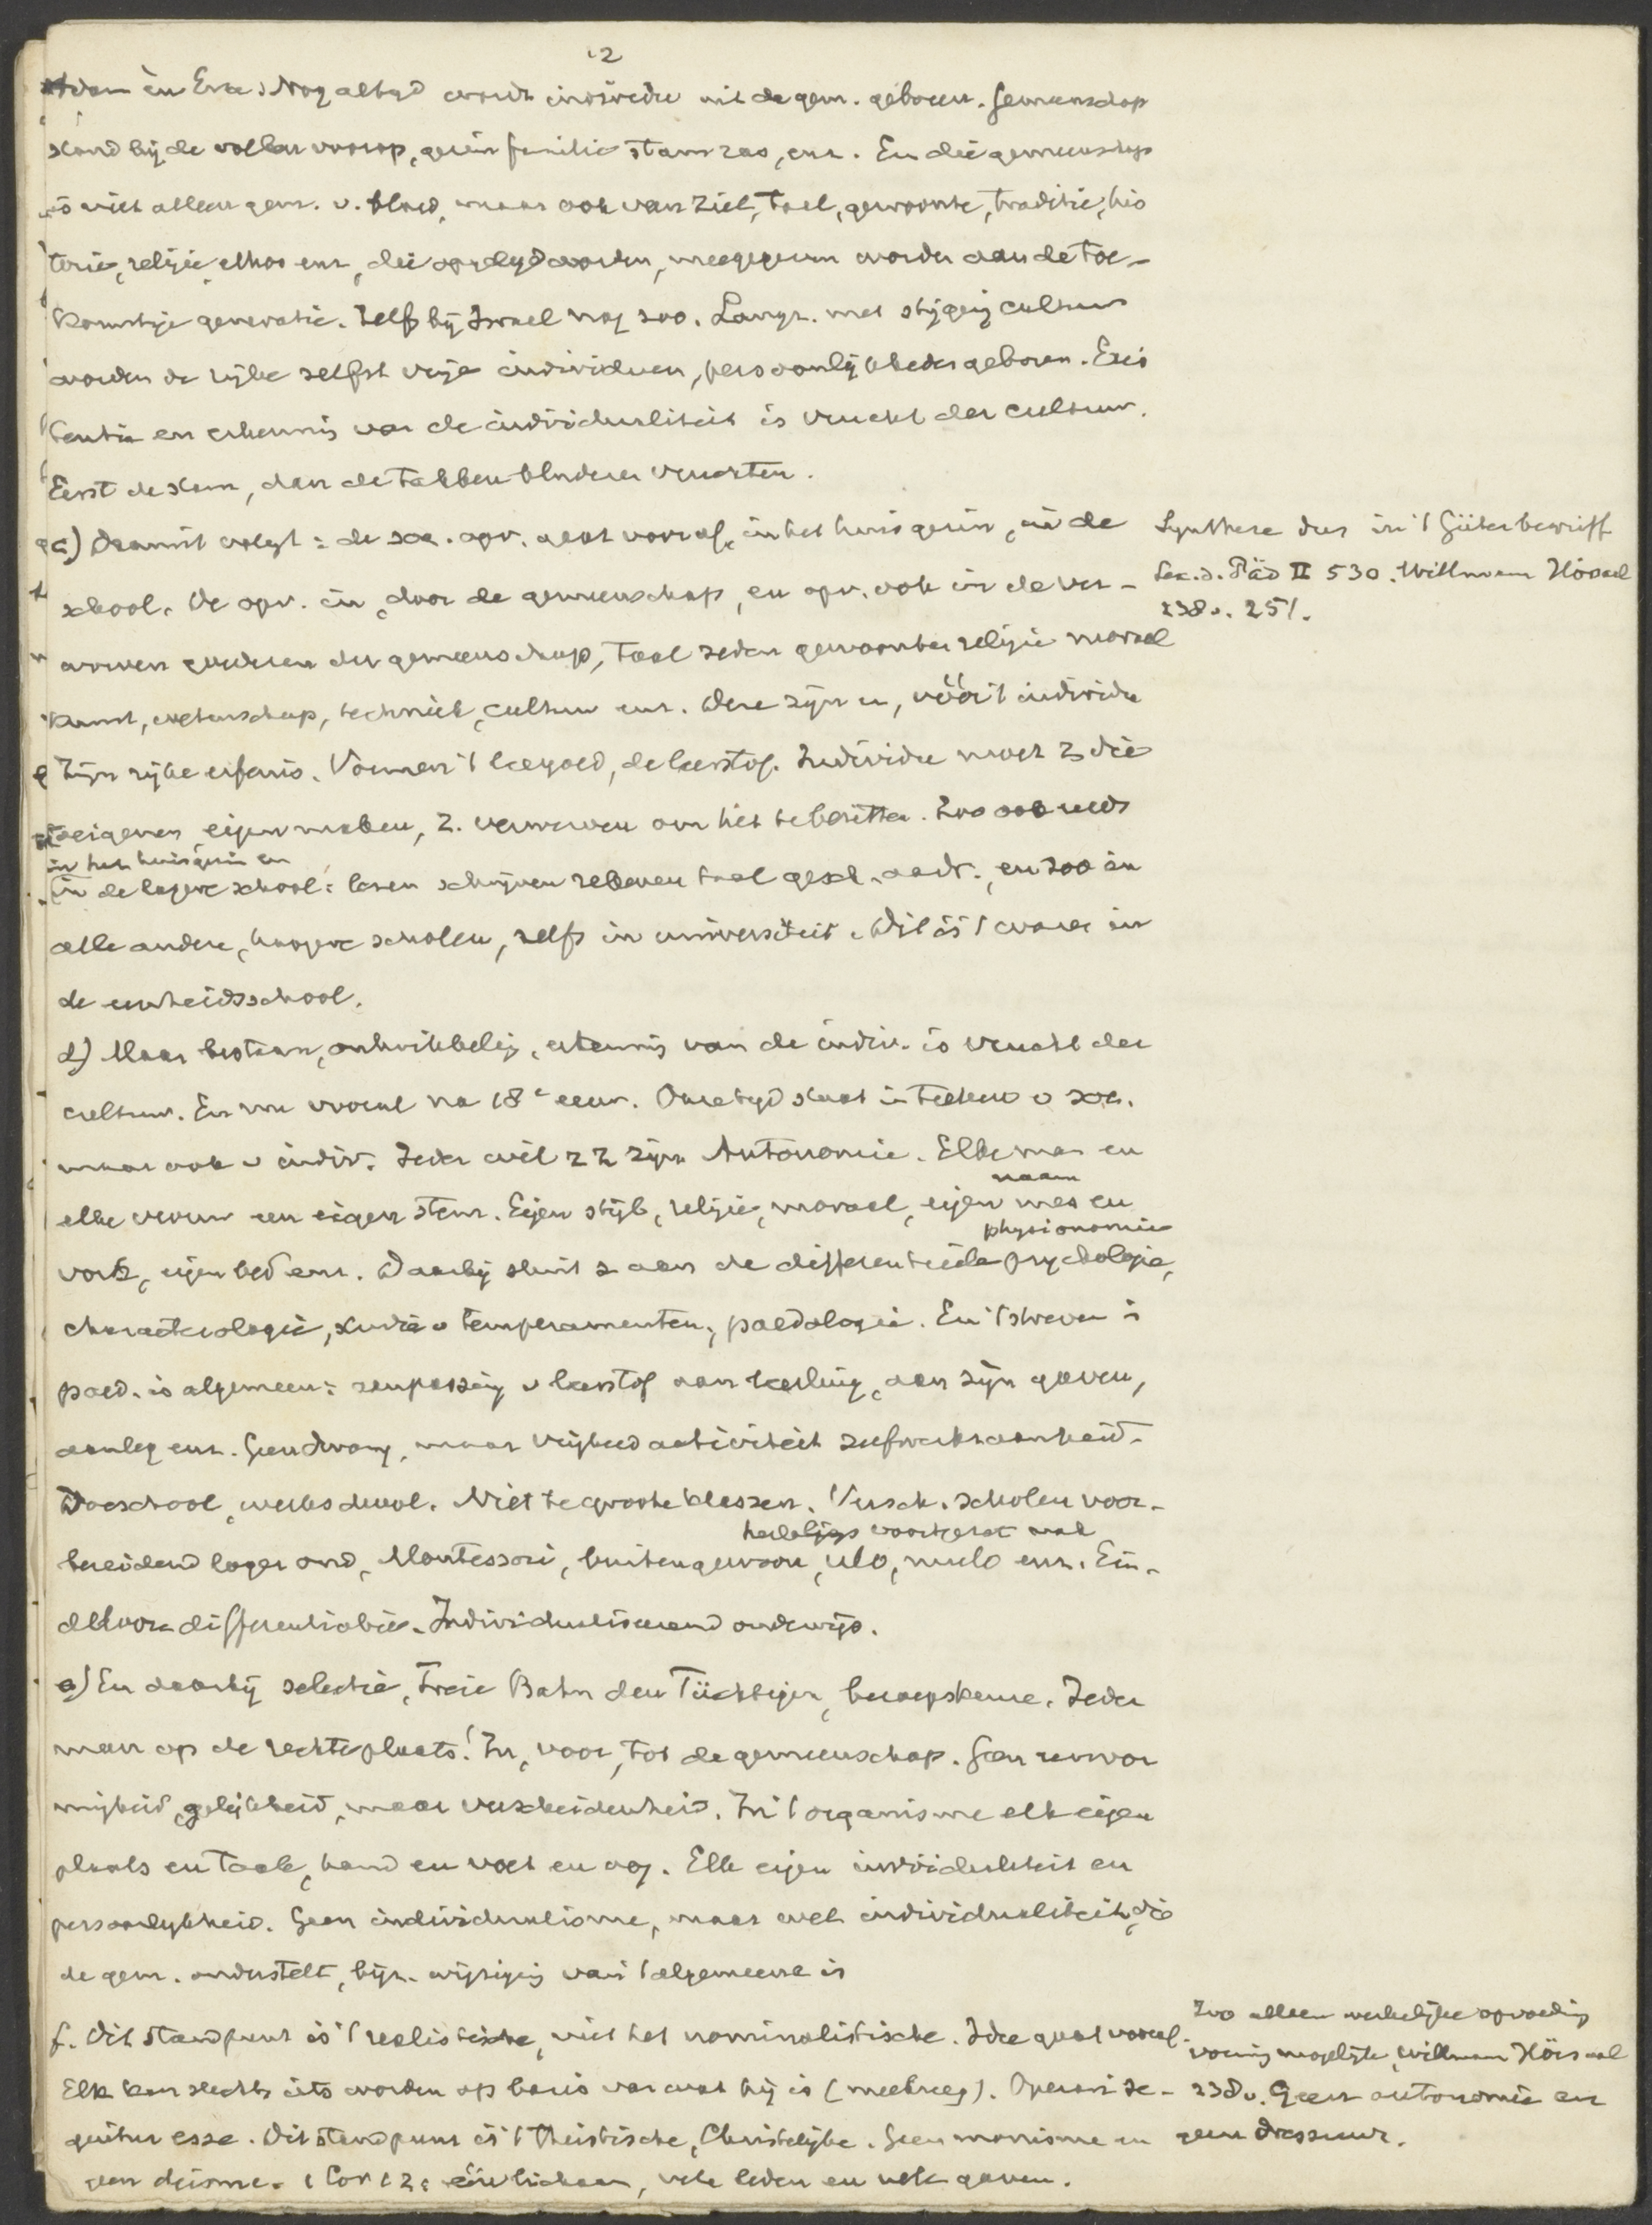 12
Adam en Eva. Nog altyd wordt individu uit de gem. geboren. Gemeenschap
stond bij de volken voorop, gezin familie stam ras, enz. En die gemeenschap
is niet alleen gem. v. bloed, maar ook van ziel, taal, gewoonte, traditie, his
torie, religie, ethos enz, die opgelegd worden, meegegeven worden aan de toe-
komstige generatie. Zelfs bij Israel nog zoo. Langz. met stijging cultuur
worden de rijke zelfst vrije individuen, persoonlijkheden geboren. Exis
tentie en erkennis van de individualiteit is vrucht der cultuur.
Eerst de stam, dan de takken bladeren vruchten.
c) Daaruit volgt: de soc. opv. gaat vooraf, in het huisgezin, in de
school. De opv. in, door de gemeenschap, en opv. ook in de ver-
worven goederen der gemeenschap, taal zeden gewoonten religie moraal
kunst, wetenschap, techniek, cultuur enz. Deze zijn er, vóór 't individu
Zijn rijke erfenis. Vormen 't leergoed, de leerstof. Individu moet z die
toeeigenen, eigen maken, z. verwerven om het te bezitten. Zoo ook reeds
in het huisgezin en
in de lagere school: lezen schrijven rekenen taal gesch. aardr., en zoo in
alle andere, hoogere scholen, zelfs in universiteit. Dit is 't ware in
de eenheidsschool.
d) Maar bestaan, ontwikkeling, erkennis van de indiv. is vrucht der
cultuur. En nu vooral na 18e eeuw. Onze tyd staat in teeken v soc.
maar ook v indiv. Ieder wil z z zijn Autonomie. Elke man en
elke vrouw een eigen stem. Eigen stijl, religie, moraal, eigen mes en
naam
vork, eigen bed enz. Daarbij sluit z aan de differentieele psychologie,
physionomie
characterologie, studie v temperamenten, paedologie. En 't streven i
paed. is algemeen: aanpassing v leerstof aan leerling, aan zijn gaven,
aanleg enz. Geen dwang, maar vrijheid activiteit zelfwerkzaamheid.
Doeschool, werkschool. Niet te groote klassen. Versch. scholen voor-
bereidend lager ond, Montessori, buitengewoon, ulo, mulo enz. Ein-
deloze differentiatie. Individualiseerend onderwijs.
e) En daarbij selectie, Freie Bahn den Tüchtigen, beroepskeuze. Ieder
man op de rechte plaats! In, voor, tot de gemeenschap. Geen eenvor
migheid, gelijkheid, maar verscheidenheid. In 't organisme elk eigen
plaats en taak, hand en voet en oog. Elk eigen individualiteit en
persoonlykheid. Geen individualisme, maar wel individualiteit, die
de gem. onderstelt, bijz. wijziging van 't algemeene is
f. Dit standpunt is 't realistische, niet het nominalistische. Idee gaat vooraf.
Elk kan slechts iets worden op basis van wat hij is (meekreeg). Operari se-
quitur esse. Dit standpunt is 't Theistische, Christelijke. Geen monisme en
geen deisme. 1 Cor 12: één lichaam, vele leden en vele gaven.
Synthese dus in 't Güterbegriff
Lex. d. Päd II 530. Willmann Hörsaal
238v. 251.
Zoo alleen werkelijke opvoeding
vorming mogelijk, Willmann Hörsaal
238v. Geen autonomie en
geen dressuur.